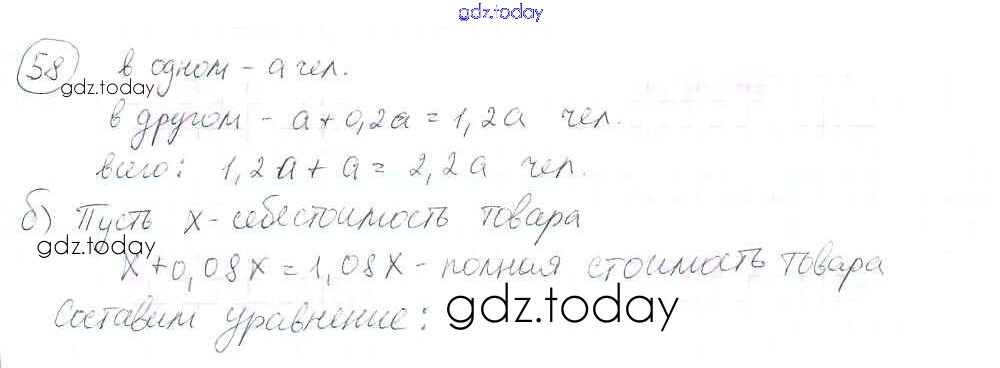 gdz.today
58 в одном - a чел.
gdz.today
в другом - a + 0,2a = 1,2a чел.
всего: 1,2a + a = 2,2a чел.
б) Пусть x - себестоимость товара
gdz.today
x + 0,08x = 1,08x - полная стоимость товара
Составим уравнение: gdz.today